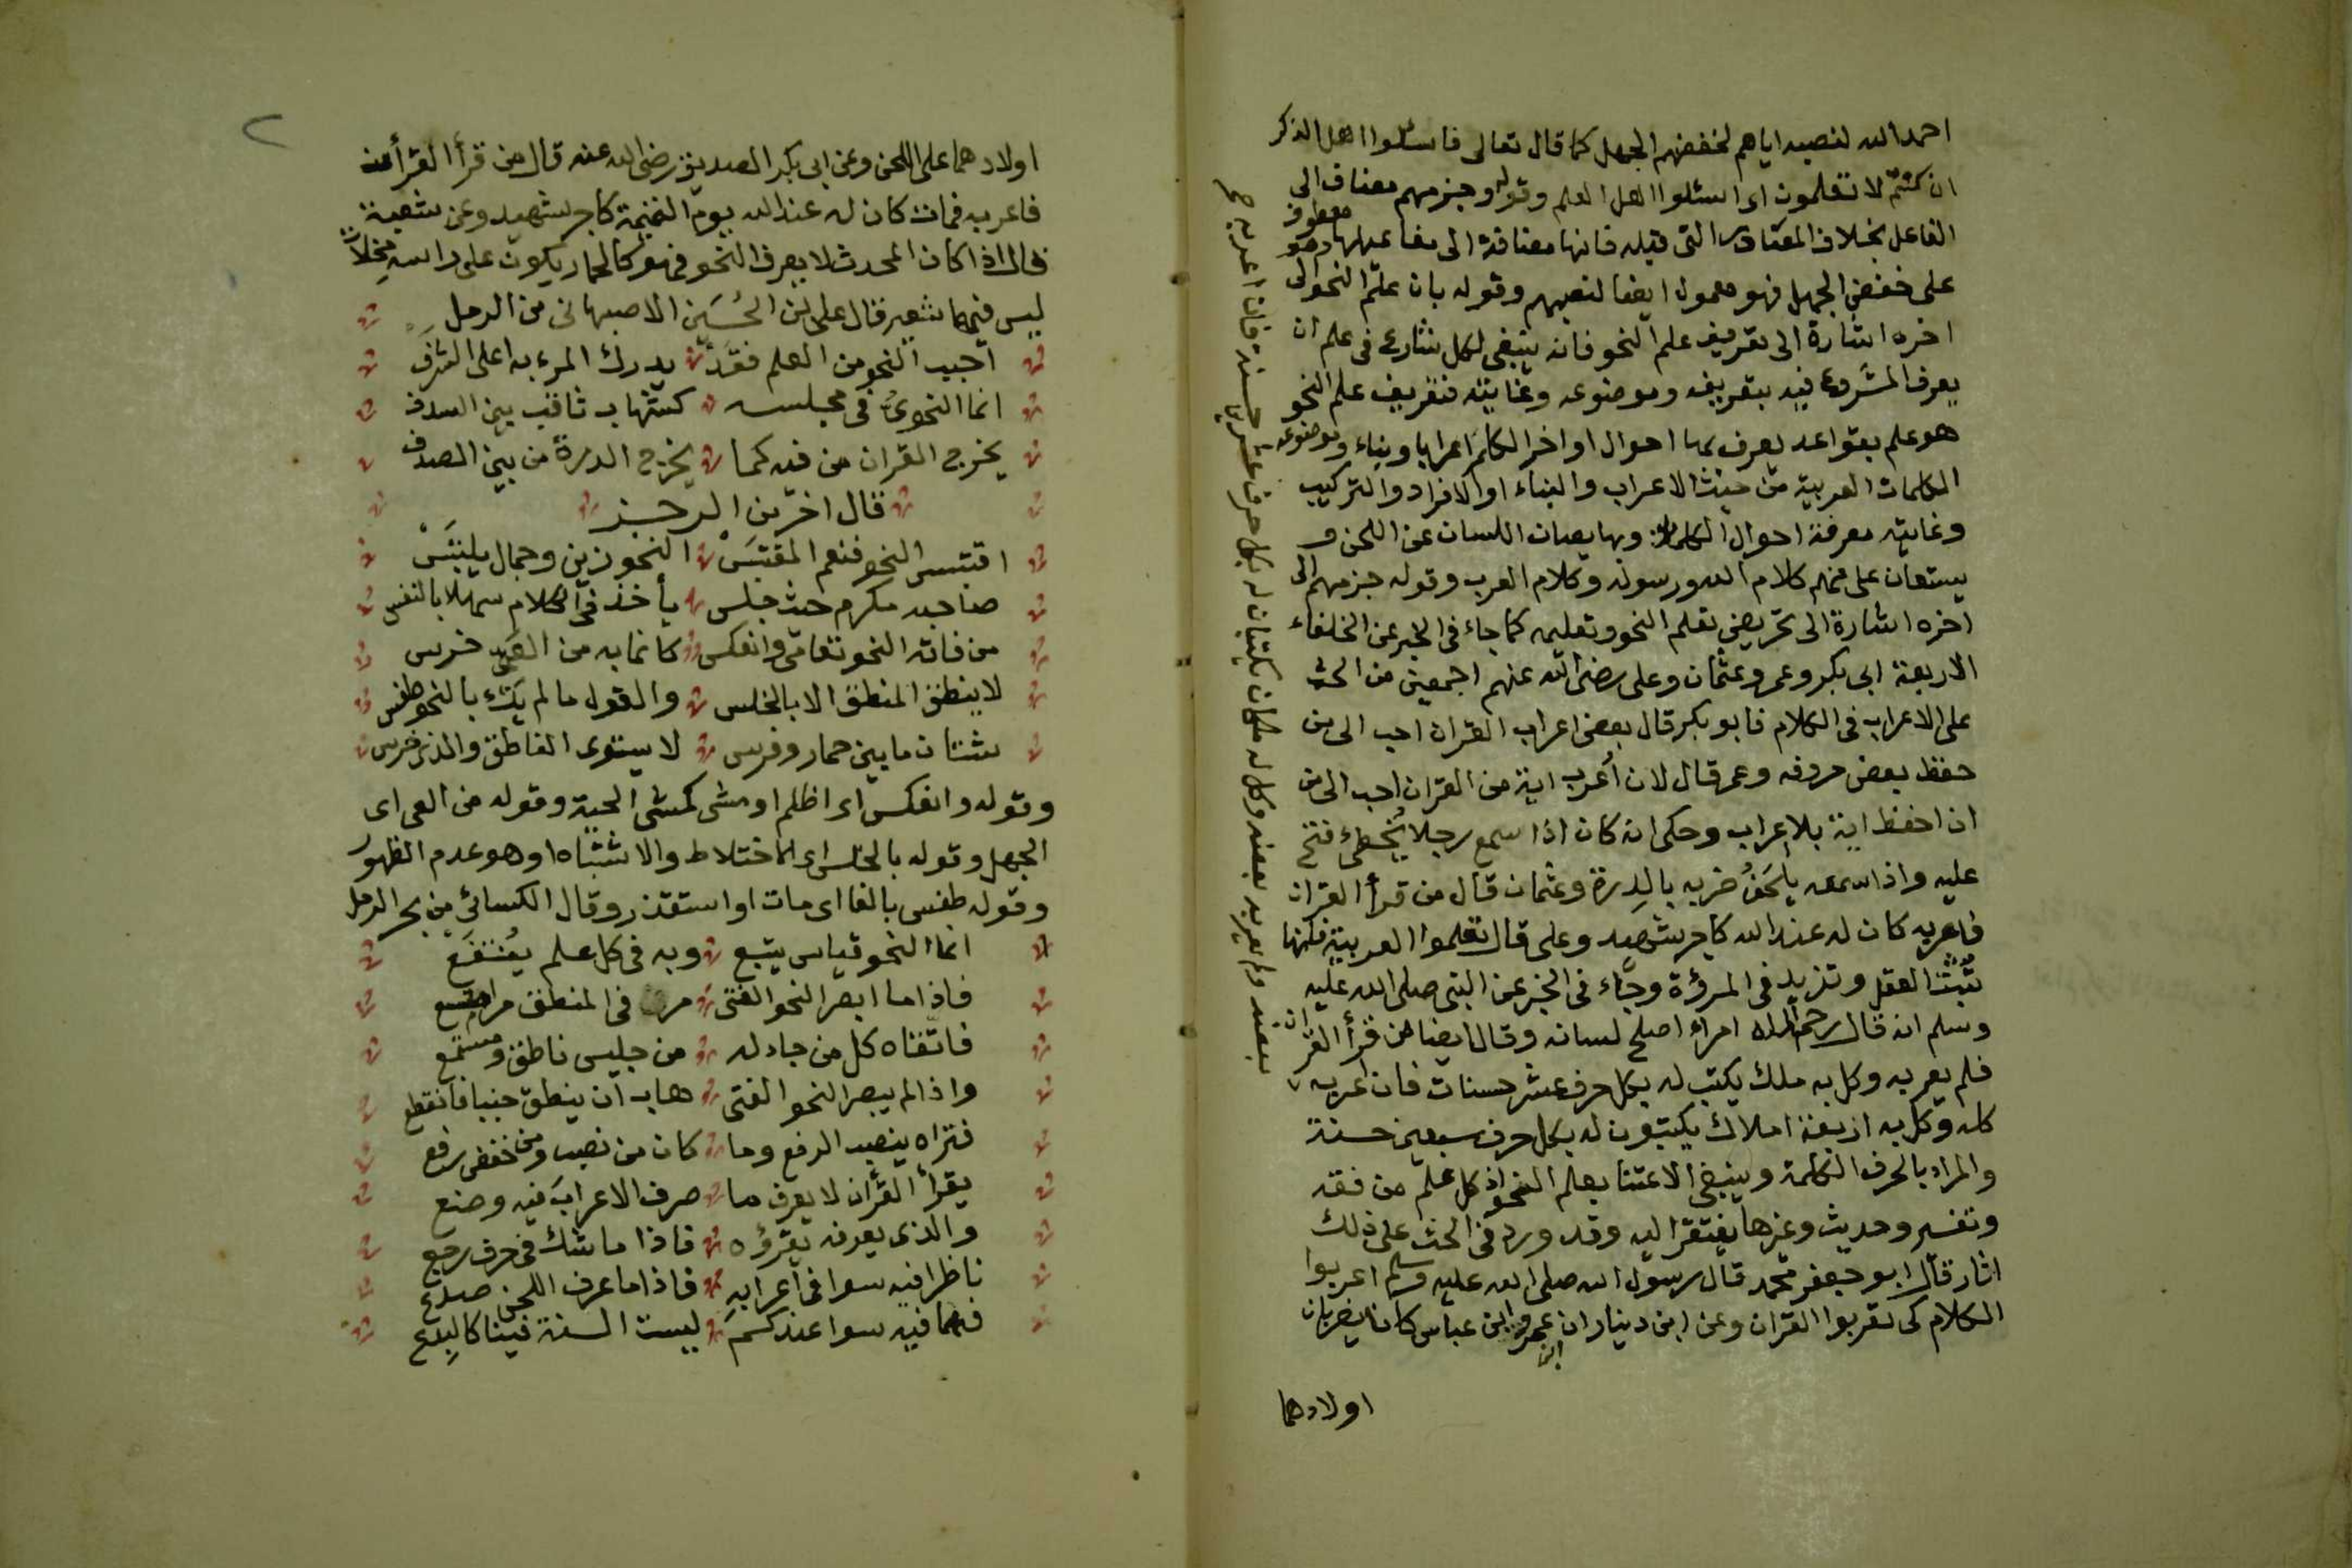 احمد الله لنصبه اياهم لخفضهم الجهل كما قال تعالى فاسئلوا اهل الذكر
ان كنتم لا تعلمون اى اسئلوا اهل العلم وقوله وجزمهم مضاف الى
الفاعل بخلاف المصادر التى قبله فانها مضافة الى مفاعيلها وهو معطوف
على خفض الجهل فهو معمول ايضا لنصبهم وقوله بان علم النحو الى
اخره اشارة الى تعريف علم النحو فانه ينبغى لكل شارع فى علم ان
يعرف المشروع فيه بتعريفه وموضوعه وغايته فتعريف علم النحو
هو علم بقواعد يعرف بها احوال اواخر الكلم اعرابا وبناء وموضوعه
الكلمات العربية من حيث الاعراب والبناء او الافراد والتركيب
وغايته معرفة احوال الكلمات وبها يصان اللسان عن اللحن و
يستعان على فهم كلام الله ورسوله وكلام العرب وقوله جزمهم الى
اخره اشارة الى تحريض تعلم النحو وتعليمه كما جاء فى الخبر عن الخلفاء
الاربعة ابى بكر وعمر وعثمان وعلى رضى الله عنهم اجمعين من الحث
على الاعراب فى الكلام فابو بكر قال بعض اعراب القران احب الى من
حفظ بعض حروفه وعمر قال لان أعرب اية من القران احب الى من
ان احفظ اية بلا اعراب وحكى انه كان اذا سمع رجلا يُخطئ فتح
عليه واذا سمعه يلحَنُ ضربه بالدِرة وعثمان قال من قرأ القران
فاعربه كان له عند الله كاجر شهيد وعلى قال تعلموا العربية فانها
تُثبّت العقل وتزيد فى المرؤة وجاء فى الخبر عن النبى صلى الله عليه
وسلم انه قال رحم الله امراء اصلح لسانه وقال ايضا من قرأ القرآن
فلم يعربه وكل به ملك يكتب له بكل حرف عشر حسنات فان اعربه
كله وكل به اربعة املاك يكتبون له بكل حرف سبعين حسنة
والمراد بالحرف الكلمة وينبغى الاعتنا بعلم النحو اذ كل علم من فقه
وتفسير وحديث وغيرها يفتقر اليه وقد ورد فى الحث على ذلك
اثار قال ابو جعفر محمد قال رسول الله صلى الله عليه وسلم اعربوا
الكلام كى تعربوا القران وعن ابن دينار ان ابن عمر وابن عباس كانا يضربان
اولادهما
بعضه ولم يعرب بعضه وكل له ملكان يكتبان له بكل حرف عشرين حسنة فان اعربه صح
٢
اولادهما على اللحن وعن ابى بكر الصديق رضى الله عنه قال من قرأ القرأن
فاعربه فمات كان له عند الله يوم القيمة كاجر شهيد وعن شعبة
قال اذا كان المحدث لا يعرف النحو فهو كالحمار يكون على راسه مِخلاةٌ
ليس فيها شعير قال على بن الحُسَين الاصبهانى من الرمل
احبب النحو من العلم فقَد يدرك المرء به اعلى الشرَف
انما النحوىُّ فى مجلسه كشهاب ثاقب بين السدف
يخرج القران من فيه كما يخرج الدرة من بين الصدف
قال اخر من الرجز
اقتبس النحو فنعم المقتبَسْ النحو زين وجمال يلتبَسْ
صاحبه مكرم حيث جلس يأخذ فى الكلام سهلا بالنفس
من فاته النحو تعامى وانعكس كانما به من العَىِ خرس
لا ينطق المنطق الا بالخلس والقول ما لم يكُ بالنحو طفس
شتان ما بين حمار وفرس لا يستوى الناطق والذى خرس
وقوله وانعكس اى اظلم او مشى كمشى الحية وقوله من العى اى
الجهل وقوله بالخلس اى الاختلاط والاشتباه او هو عدم الظهور
وقوله طفس بالفا اى مات او استقذر وقال الكسائى من بحر الرمل
انما النحو قياس يتبع وبه فى كل علم يُنتفَع
فاذا ما ابصر النحو الفتى مر فى المنطق مرا
فاتقاه كل من جادله من جليس ناطق ومستمع
واذا لم يبصر النحو الفتى هاب ان ينطق جبنا فانقطع
فتراه ينصب الرفع وما كان من نصب ومن خفض رفع
يقرأ القرأن لا يعرف ما صرف الاعرابَ فيه وصنع
والذى يعرفه يقرؤه فاذا ما شك فى حرف رجع
ناظرا فيه سوا فى اعرابهِ فاذا ما عرف اللحن صدع
فهما فيه سوا عندكم ليست السنة فينا كالبِدع